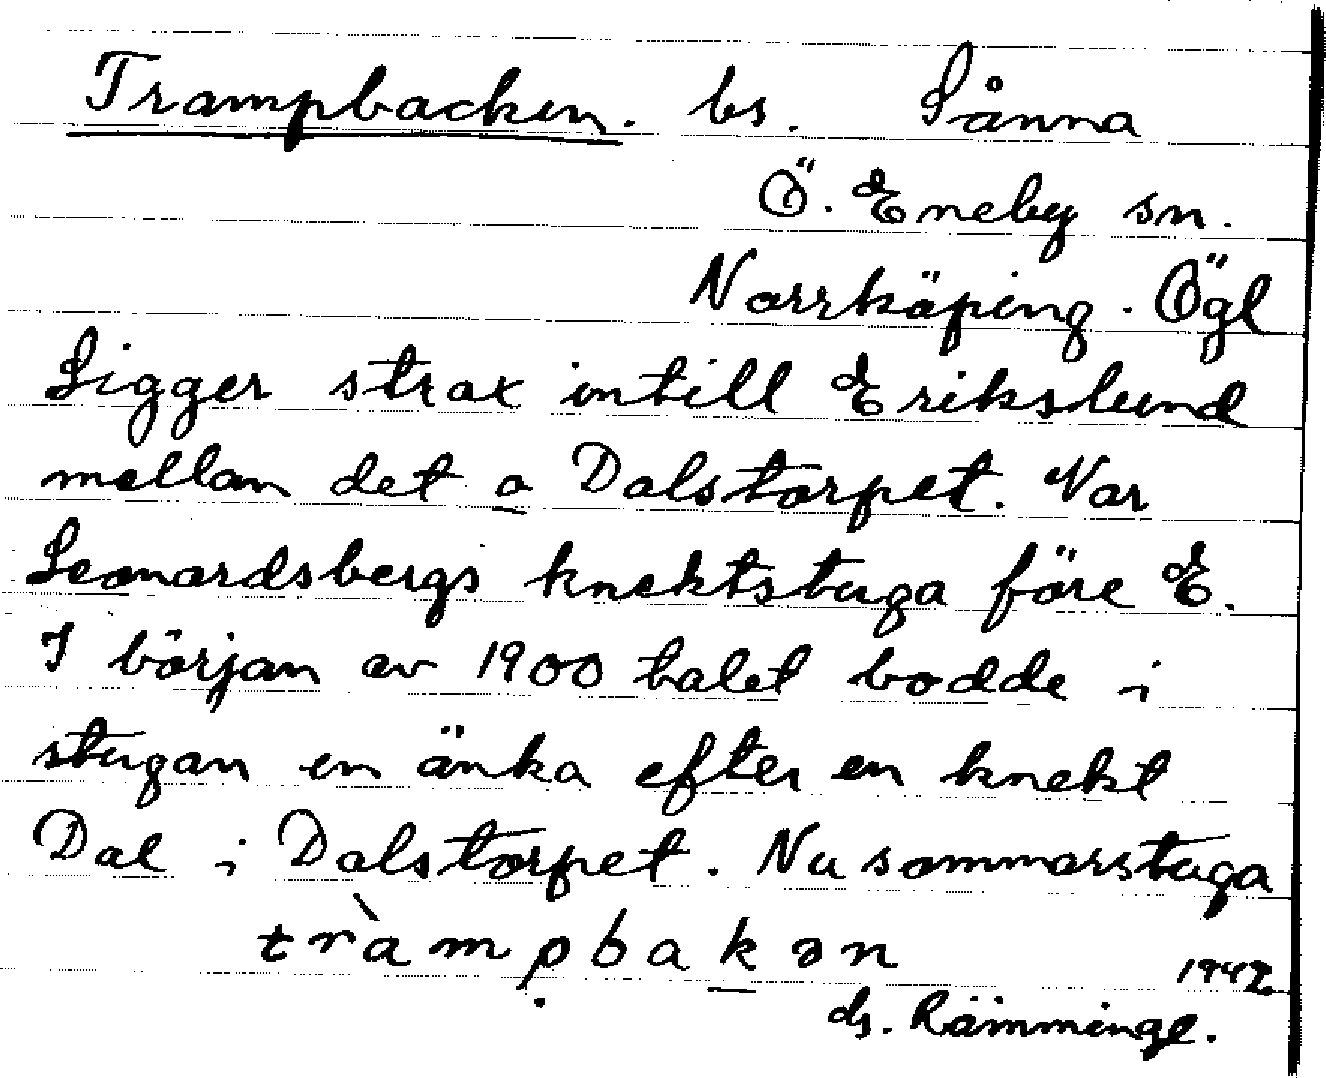 Trampbacken. bs. Sånna
Ö. Eneby sn.
Norrköping. Ögl
Ligger strax intill Erikslund
mellan det o Dalstorpet. Var
Leonardsbergs knektstuga före E.
I början av 1900 talet bodde i
stugan en änka efter en knekt
Dal i Dalstorpet. Nu sommarstuga
tràmpbakən
1942
ds. Rämminge.